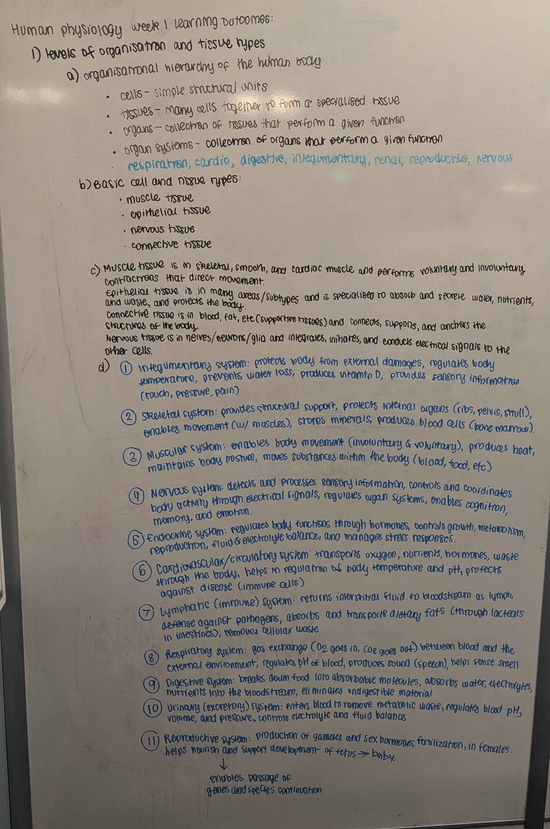 Human physiology week 1 learning outcomes:
1) levels of organisation and tissue types
a) organisational hierarchy of the human body
• cells - simple structural units
• tissues - many cells together to form a specialised tissue
• organs - collection of tissues that perform a given function
• organ systems - collection of organs that perform a given function
respiration, cardio, digestive, integumentary, renal, reproductive, nervous
b) Basic cell and tissue types:
• muscle tissue
• epithelial tissue
• nervous tissue
• connective tissue
c) Muscle tissue is in skeletal, smooth, and cardiac muscle and performs voluntary and involuntary
contractions that direct movement.
Epithelial tissue is in many areas/subtypes and is specialised to absorb and secrete water, nutrients,
and waste, and protects the body.
Connective tissue is in blood, fat, etc (supportive tissues) and connects, supports, and anchors the
structures of the body.
Nervous tissue is in nerves/neurons/glia and integrates, initiates, and conducts electrical signals to the
other cells.
d) 1 Integumentary system: protects body from external damages, regulates body
temperature, prevents water loss, produces vitamin D, provides sensory information
(touch, pressure, pain)
2 Skeletal system: provides structural support, protects internal organs (ribs, pelvis, skull),
enables movement (w/ muscles), stores minerals, produces blood cells (bone marrow).
3 Muscular system: enables body movement (involuntary & voluntary), produces heat,
maintains body posture, moves substances within the body (blood, food, etc)
4 Nervous system: detects and processes sensory information, controls and coordinates
body activity through electrical signals, regulates organ systems, enables cognition,
memory, and emotion.
5 Endocrine system: regulates body functions through hormones, controls growth, metabolism,
reproduction, fluid & electrolyte balance, and manages stress responses.
6 Cardiovascular/circulatory system: transports oxygen, nutrients, hormones, waste
through the body, helps in regulation of body temperature and pH, protects
against disease (immune cells)
7 Lymphatic (immune) system: returns interstitial fluid to bloodstream as lymph,
defense against pathogens, absorbs and transports dietary fats (through lacteals
in intestines), removes cellular waste
8 Respiratory system: gas exchange (O2 goes in, CO2 goes out) between blood and the
external environment, regulates pH of blood, produces sound (speech), helps sense smell
9 Digestive system: breaks down food into absorbable molecules, absorbs water, electrolytes,
nutrients into the bloodstream, eliminates undigestible material
10 Urinary (excretory) system: filters blood to remove metabolic waste, regulates blood pH,
volume, and pressure, controls electrolyte and fluid balance
11 Reproductive system: production of gametes and sex hormones, fertilization, in females:
helps nourish and support development of fetus → baby.
↓
enables passage of
genes and species continuation